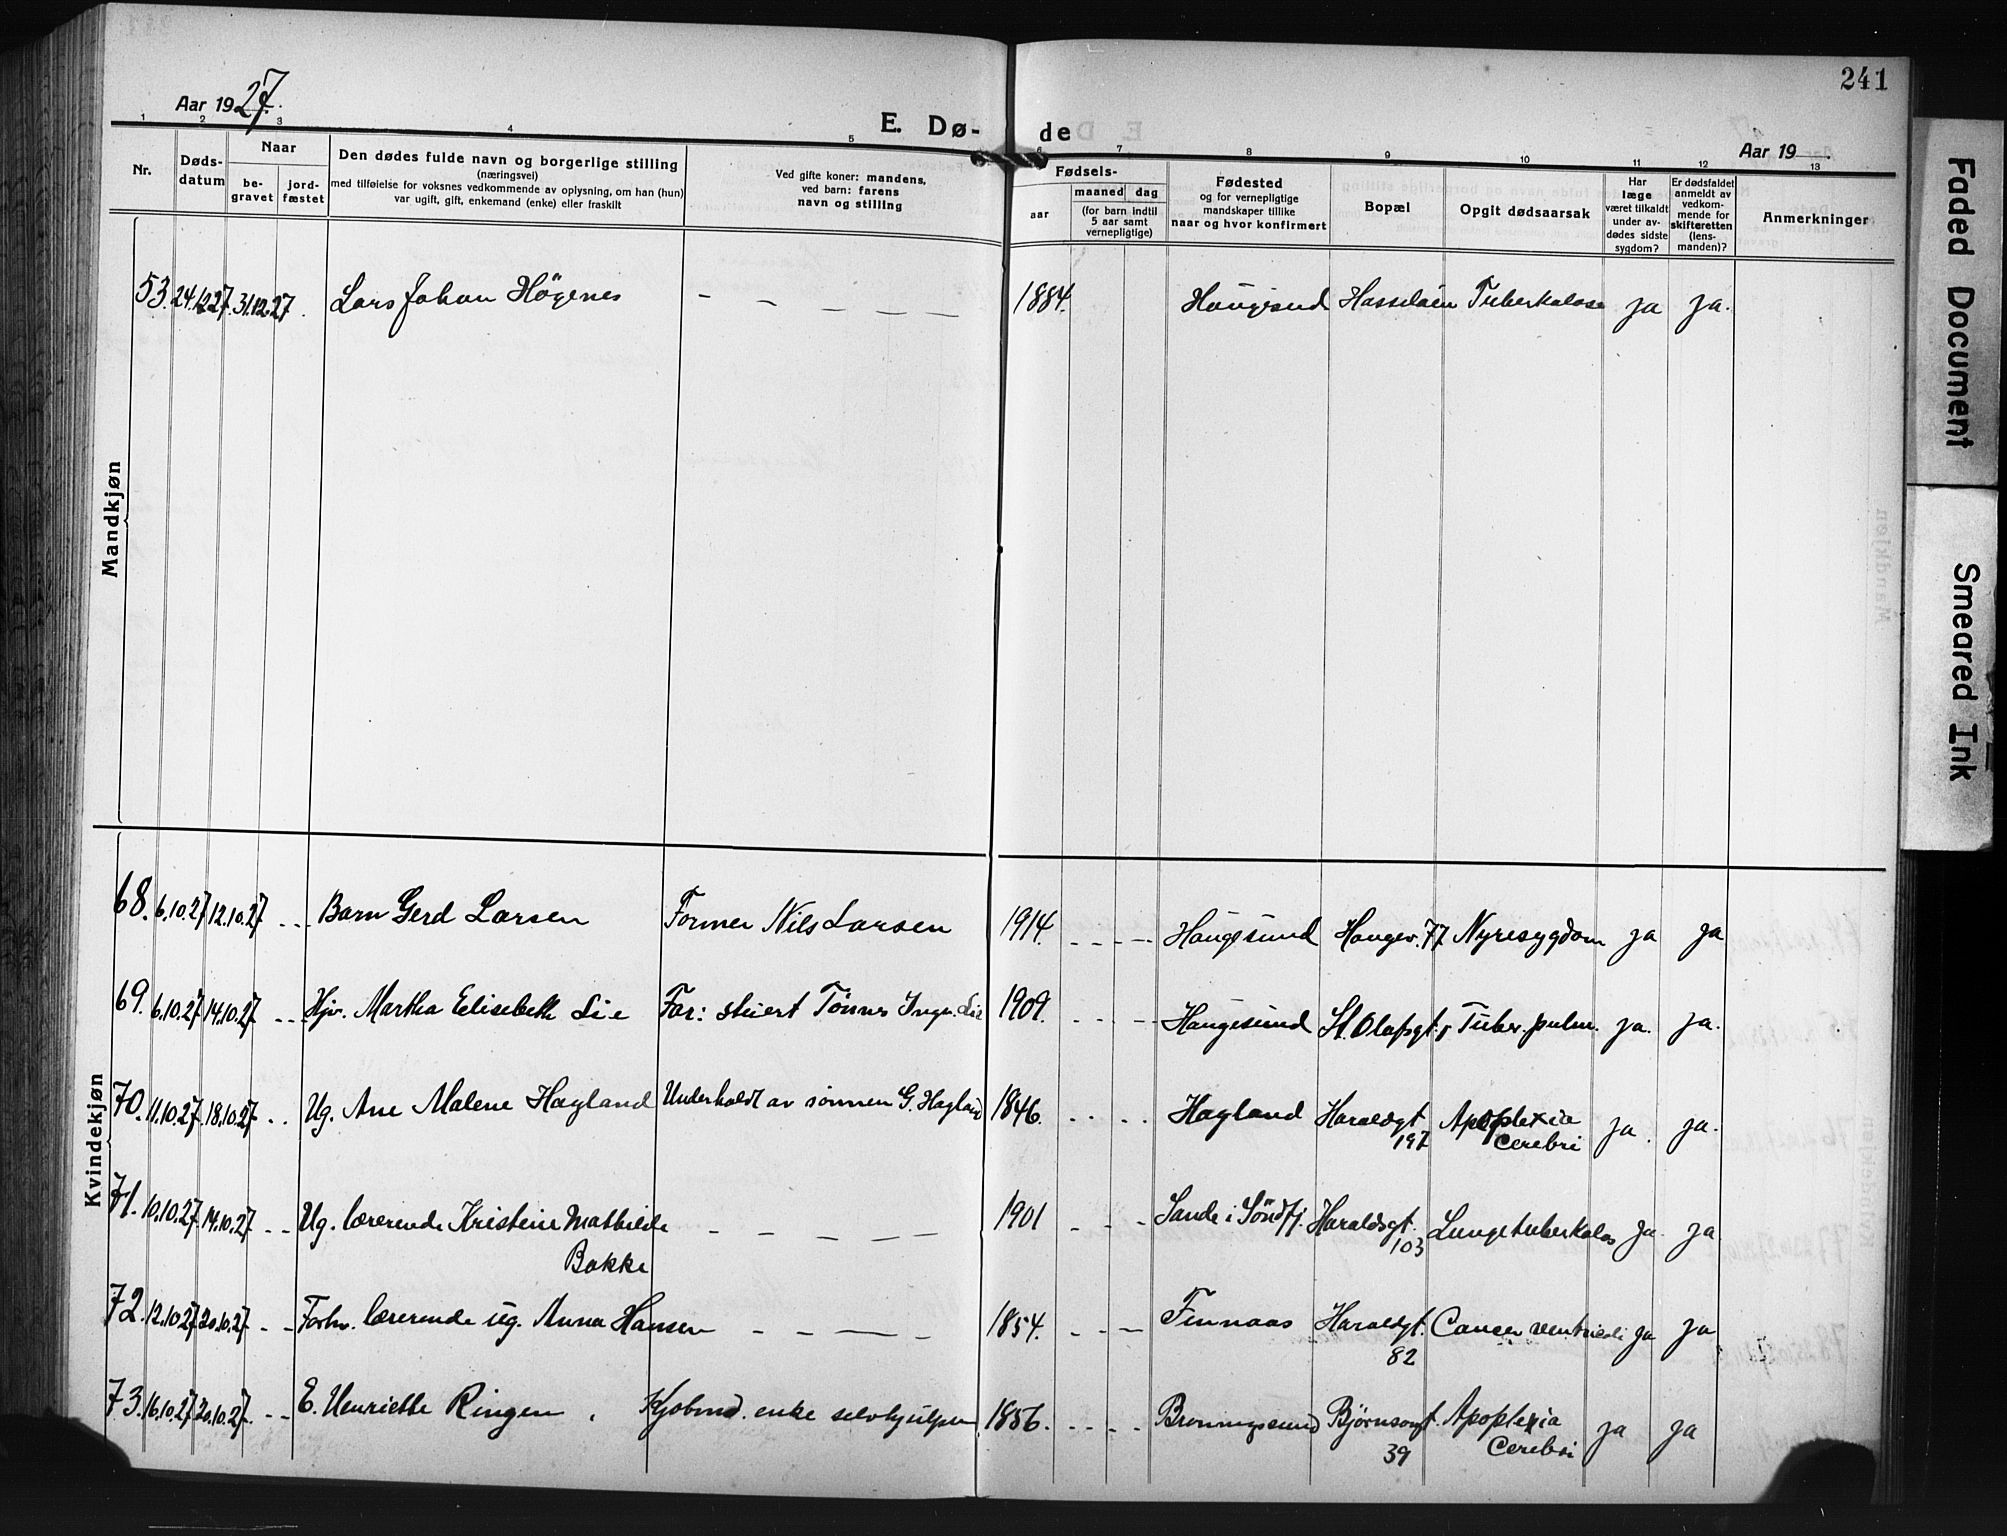 241
Aar 1927.
E. Dø-
de
Aar 19
1 2 3 4 5 6 7 8 9 10 11 12 13
Nr.
Døds-
datum
Naar
be-
gravet
jord-
fæstet
Den dødes fulde navn og borgerlige stilling
(næringsvei)
med tilføielse for voksnes vedkommende av oplysning, om han (hun)
var ugift, gift, enkemand (enke) eller fraskilt
Ved gifte koner: mandens,
ved barn: farens
navn og stilling
Fødsels-
aar
maaned dag
(for barn indtil
5 aar samt
vernepligtige)
Fødested
og for vernepligtige
mandskaper tillike
naar og hvor konfirmert
Bopæl
Opgit dødsaarsak
Har
læge
været tilkaldt
under av-
dødes sidste
sygdom?
Er dødsfaldet
anmeldt av
vedkom-
mende for
skifteretten
(lens-
manden)?
Anmerkninger
Mandkjøn
53. 24.12.27 31.12.27. Lars Johan Högenes - - - - - 1884. Haugesund Hasseløen Tuberkulose ja ja.
Kvindekjøn
68. 6.10.27 12.10.27 - - - Barn Gerd Larsen Former Nils Larsen 1914. - - - - Haugesund Haugev. 77 Nyresygdom ja ja
69. 6.10.27 14.10.27 - - - Hjv. Martha Elisebeth Lie Far: stuert Tønnes Ingv. Lie 1909. - - - - Haugesund St. Olafsgt. Tuber. pulm. ja. ja.
70. 11.10.27. 18.10.27 - - Ug. Ane Malene Hagland Underholdt av sönnen G. Hagland 1846. - - - - Hagland Haraldsgt
197 Apoplexia
Cerebri ja. ja.
71. 10.10.27 14.10.27 - - Ug. lærerinde Kristine Mathilde
Bakke - - - - - 1901 - - - Sande i Söndfj. Haraldsgt.
103 Lungetuberkulos ja. ja.
72. 12.10.27 20.10.27 - - Forhv. lærerinde ug. Anna Hansen - - - - 1854. - - - Finnaas Haraldgt.
82 Cancer ventriculi ja ja
73. 16.10.27 20.10.27. - - E. Henriette Ringen. Kjøbmd. enke selvhjulpen 1856. - - - - Bronningsund Björnsongt.
39 Apoplexia
Cerebri ja ja
Faded Document
Smeared Ink